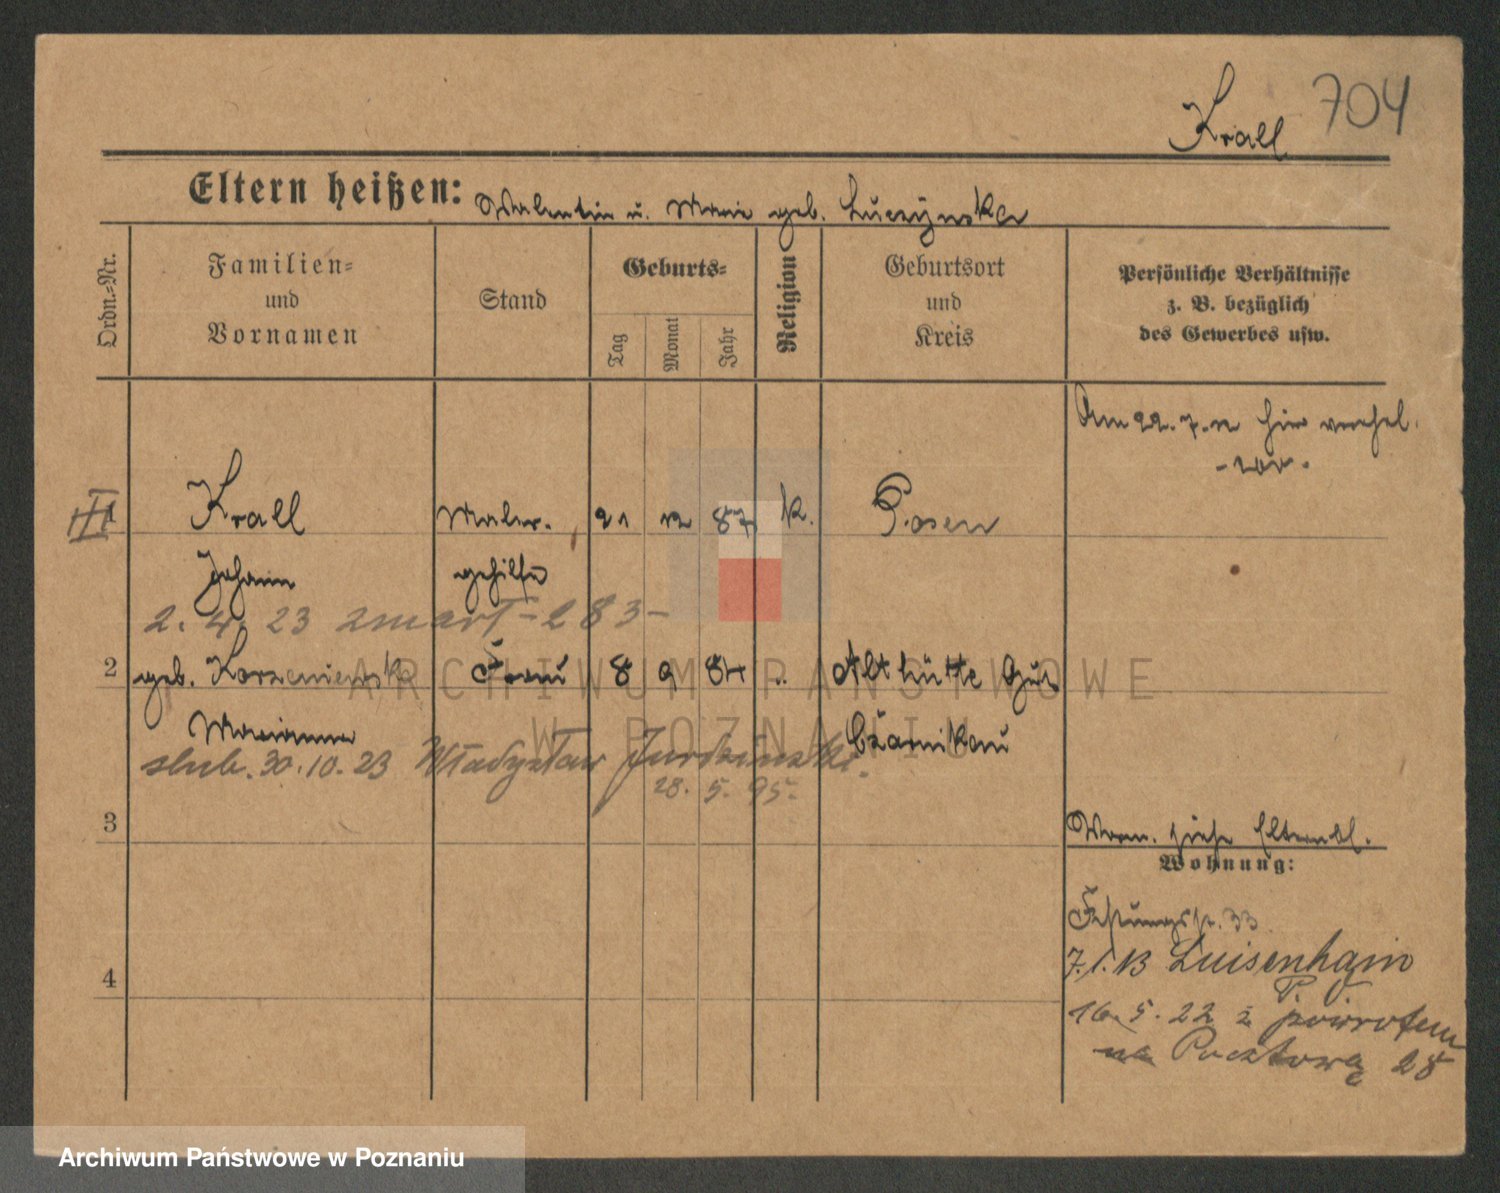 Krall 704
Eltern heißen: Valentin u. Marie geb. Luczynska
Ordn.-Nr.
Familien-
und
Vornamen
Stand
Geburts-
Tag
Monat
Jahr
Religion
Geburtsort
und
Kreis
Persönliche Verhältnisse
z. B. bezüglich
des Gewerbes usw.
Am 22.7.12 hier verhel.
1 Krall Maler- 21 12 87 k. Posen
Johann gehilfe
2. 4. 23 zmarł - 283 -
2 geb. Frau 8 9 84 Althütte
Marianna Czarnikau
ślub. 30.10.23 Władysław
28. 5. 95.
3
Vorm. siehe Elternbl.
Wohnung:
Festungsstr. 33
7.1.13 Luisenhain
4
16. 5. 22 z powrotem
na Pocztową 28
ARCHIWUM PAŃSTWOWE
W POZNANIU
Archiwum Państwowe w Poznaniu